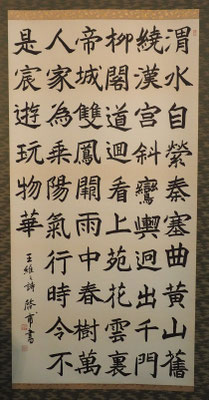 渭水自縈秦塞曲黄山舊
繞漢宮斜鑾輿迥出千門
柳閣道迴看上苑花雲裏
帝城雙鳳闕雨中春樹萬
人家為乘陽氣行時令不
是宸遊玩物華
王維之詩 書